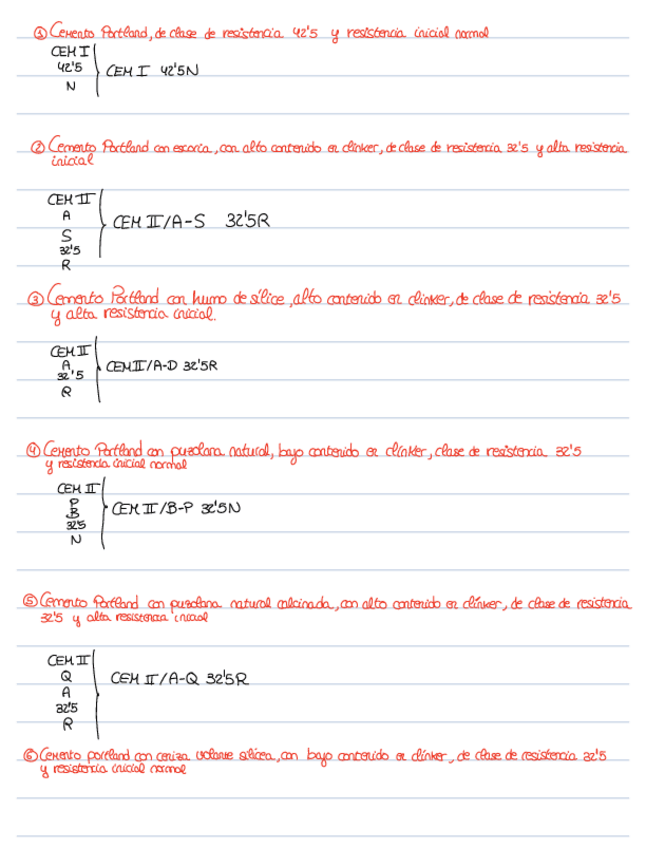 ① Cemento Portland, de clase de resistencia 42'5 y resistencia inicial normal
CEM I
42'5
N
CEM I 42'5N
② Cemento Portland con escoria, con alto contenido en clinker, de clase de resistencia 32'5 y alta resistencia
inicial
CEM II
A
S
32'5
R
CEM II/A-S 32'5R
③ Cemento Portland con humo de sílice, alto contenido en clinker, de clase de resistencia 32'5
y alta resistencia inicial.
CEM II
A
32'5
R
CEM II/A-D 32'5R
④ Cemento Portland con puzolana natural, bajo contenido en clínker, clase de resistencia 32'5
y resistencia inicial normal
CEM II
P
B
32'5
N
CEM II/B-P 32'5N
⑤ Cemento Portland con puzolana natural calcinada, con alto contenido en clínker, de clase de resistencia
32'5 y alta resistencia inicial
CEM II
Q
A
32'5
R
CEM II/A-Q 32'5R
⑥ Cemento portland con ceniza volante silícea, con bajo contenido en clínker, de clase de resistencia 32'5
y resistencia inicial normal